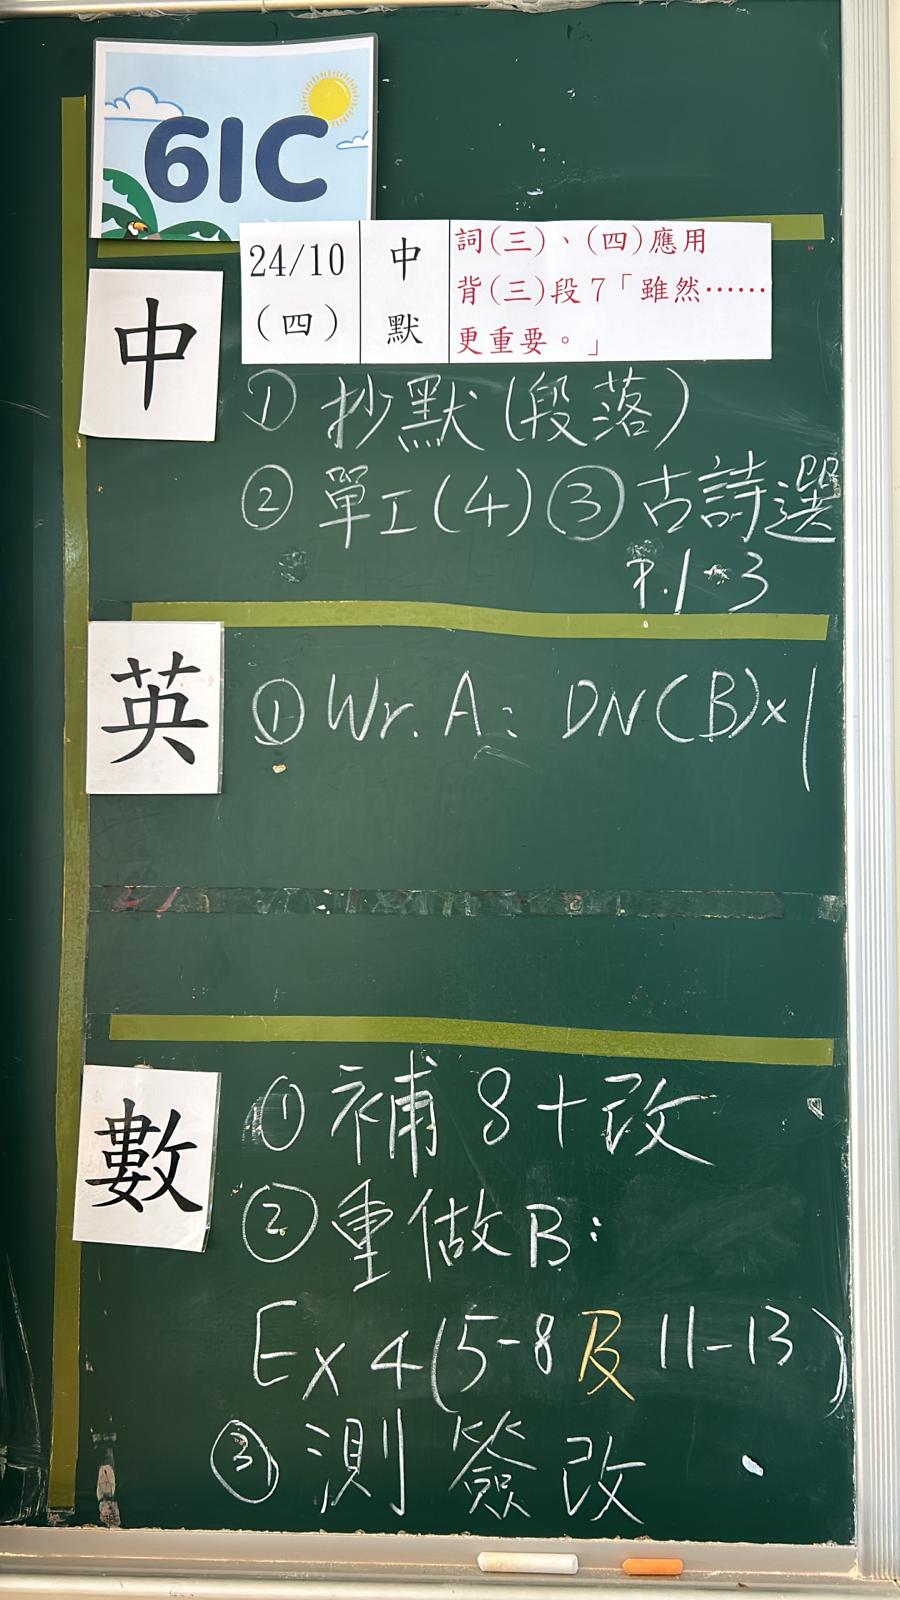 6IC
24/10
(四)
中
默
詞(三)、(四)應用
背(三)段7「雖然……
更重要。」
中
① 抄默(段落)
② 單工(4) ③ 古詩選
P.1-3
英
① Wr. A: DN(B)×1
數
① 補8+改
② 重做B:
Ex 4(5-8及11-13)
③ 測簽改